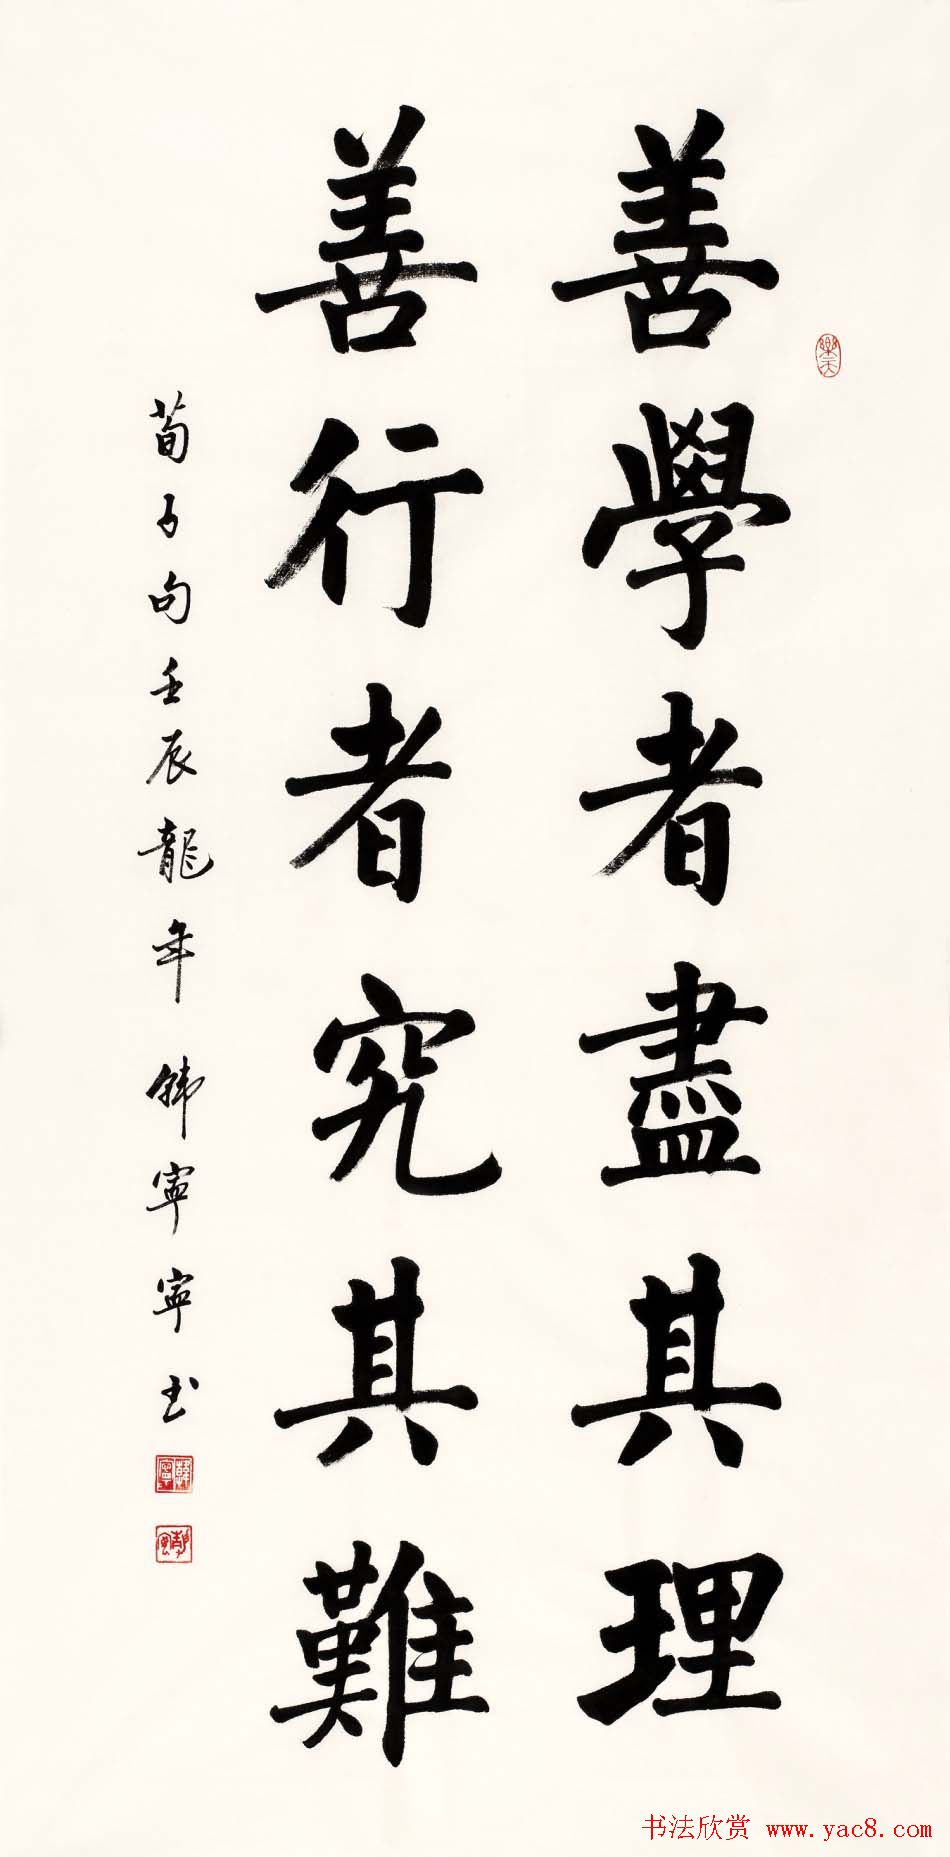 善學者盡其理
善行者究其難
荀子句壬辰龍年 韩寧寧书
樂天
韓寧
书法欣赏 www.yac8.com